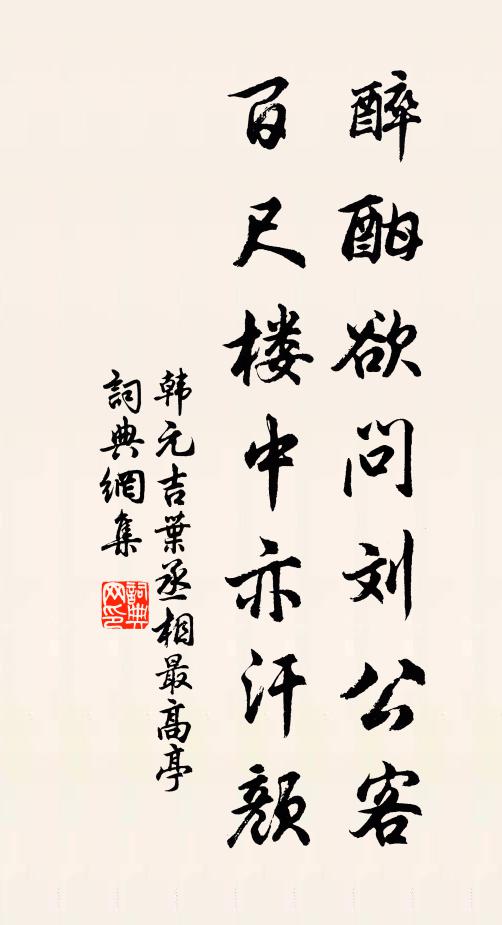 醉酣欲问刘公客
百尺楼中亦汗颜
韩元吉葉丞相最高亭
詞典網集
詞典网印